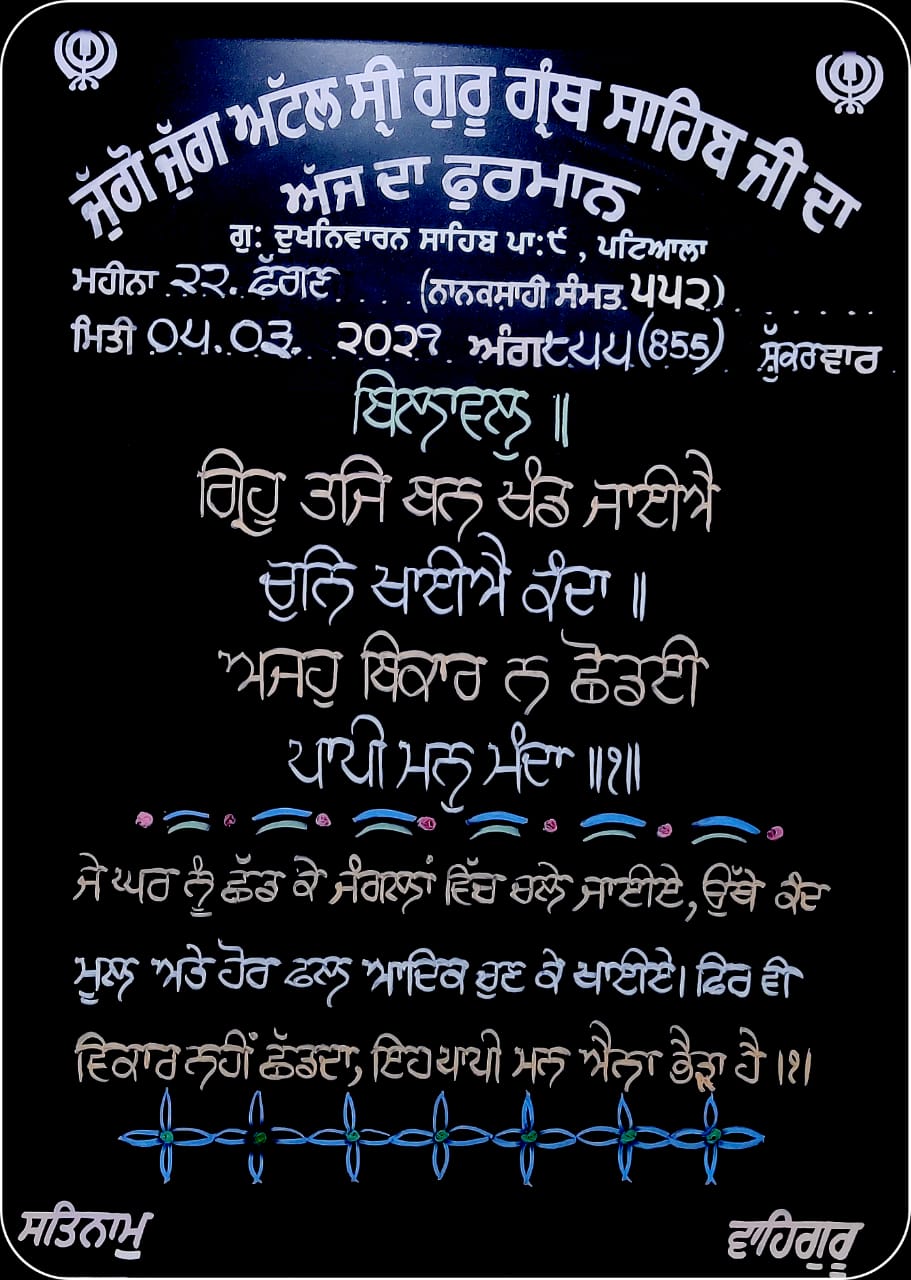 ਜੁੱਗੋ ਜੁੱਗ ਅਟੱਲ ਸ੍ਰੀ ਗੁਰੂ ਗ੍ਰੰਥ ਸਾਹਿਬ ਜੀ ਦਾ
ਅੱਜ ਦਾ ਫੁਰਮਾਨ
ਗੁ: ਦੁਖਨਿਵਾਰਨ ਸਾਹਿਬ ਪਾ:੯, ਪਟਿਆਲਾ
ਮਹੀਨਾ ੨੨. ਫੱਗਣ (ਨਾਨਕਸ਼ਾਹੀ ਸੰਮਤ ੫੫੨)
ਮਿਤੀ ੦੫.੦੩. ੨੦੨੧ ਅੰਗ ੮੫੫ (855) ਸ਼ੁੱਕਰਵਾਰ
ਬਿਲਾਵਲੁ ॥
ਗ੍ਰਿਹੁ ਤਜਿ ਬਨ ਖੰਡ ਜਾਈਐ
ਚੁਨਿ ਖਾਈਐ ਕੰਦਾ ॥
ਅਜਹੁ ਬਿਕਾਰ ਨ ਛੋਡਈ
ਪਾਪੀ ਮਨੁ ਮੰਦਾ ॥੧॥
ਜੇ ਘਰ ਨੂੰ ਛੱਡ ਕੇ ਜੰਗਲਾਂ ਵਿੱਚ ਚਲੇ ਜਾਈਏ, ਉੱਥੇ ਕੰਦ
ਮੂਲ ਅਤੇ ਹੋਰ ਫਲ ਆਦਿਕ ਚੁਣ ਕੇ ਖਾਈਏ। ਫਿਰ ਵੀ
ਵਿਕਾਰ ਨਹੀਂ ਛੱਡਦਾ, ਇਹ ਪਾਪੀ ਮਨ ਐਨਾ ਭੈੜਾ ਹੈ ।੧।
ਸਤਿਨਾਮੁ ਵਾਹਿਗੁਰੂ